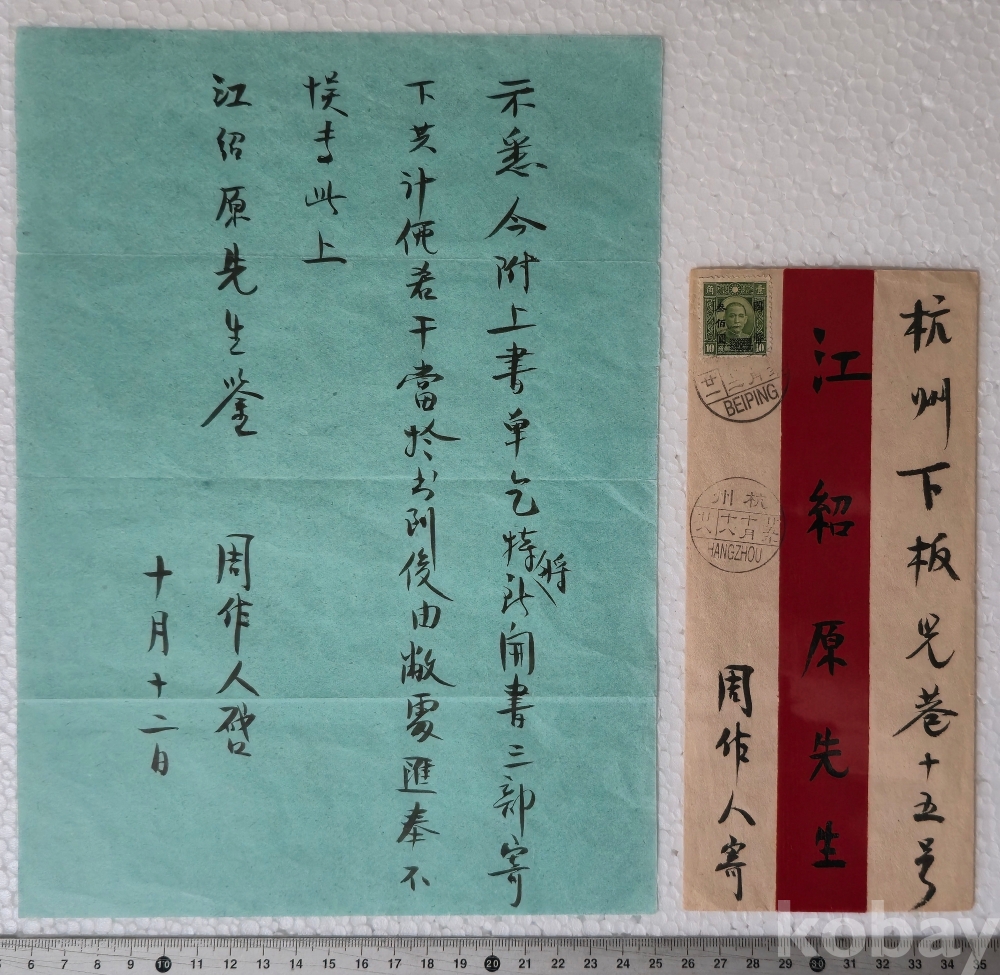 示悉今附上書单乞特将所開書三部寄
下共计価若干當於书到後由敝處匯奉不
悮专此上
江绍原先生鉴
周作人啓
十月十二日
杭州下板兒巷十五号
江紹原先生
周作人寄
國幣
叁佰圓
10 10
BEIPING
杭州
HANGZHOU
kobay
6 7 8 9 10 11 12 13 14 15 16 17 18 19 20 21 22 23 24 25 26 27 28 29 30 31 32 33 34 35